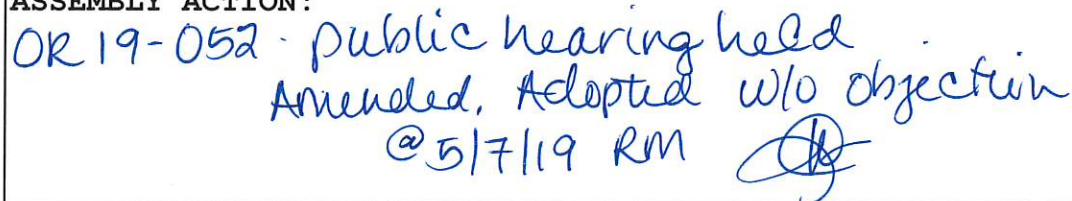 ASSEMBLY ACTION:
OR 19-052. public hearing held
Amended, Adopted w/o objection
@ 5/7/19 RM